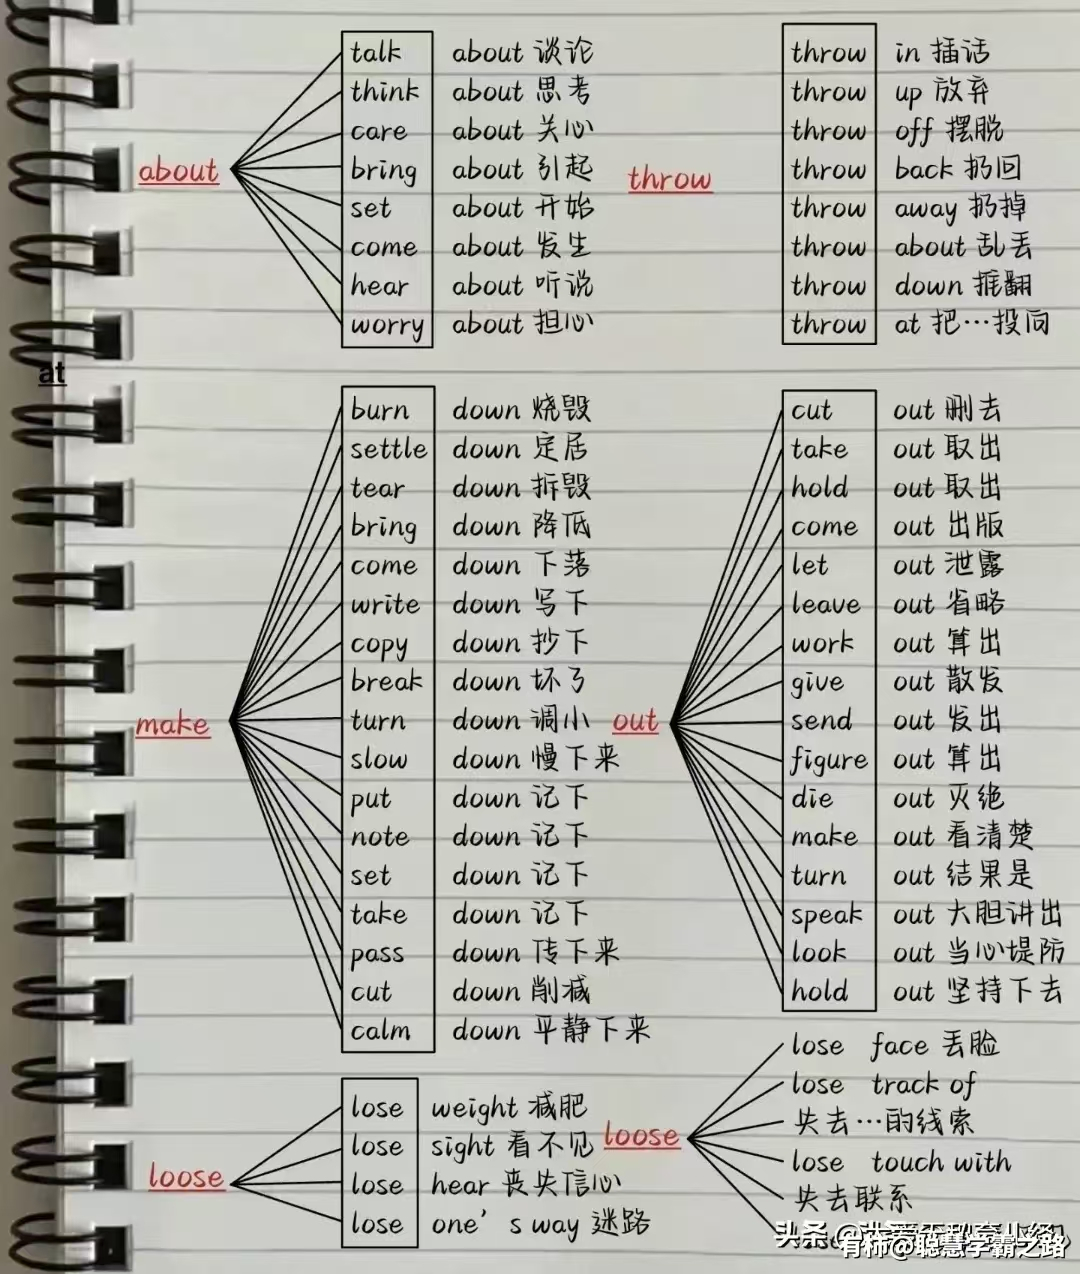 about
talk about 谈论
think about 思考
care about 关心
bring about 引起
set about 开始
come about 发生
hear about 听说
worry about 担心
throw
throw in 插话
throw up 放弃
throw off 摆脱
throw back 扔回
throw away 扔掉
throw about 乱丢
throw down 推翻
throw at 把…投向
at
make
burn down 烧毁
settle down 定居
tear down 拆毁
bring down 降低
come down 下落
write down 写下
copy down 抄下
break down 坏了
turn down 调小
slow down 慢下来
put down 记下
note down 记下
set down 记下
take down 记下
pass down 传下来
cut down 削减
calm down 平静下来
out
cut out 删去
take out 取出
hold out 取出
come out 出版
let out 泄露
leave out 省略
work out 算出
give out 散发
send out 发出
figure out 算出
die out 灭绝
make out 看清楚
turn out 结果是
speak out 大胆讲出
look out 当心堤防
hold out 坚持下去
loose
lose weight 减肥
lose sight 看不见
lose hear 丧失信心
lose one's way 迷路
loose
lose face 丢脸
lose track of
失去…的线索
lose touch with
失去联系
头条
有柿@聪慧学霸之路